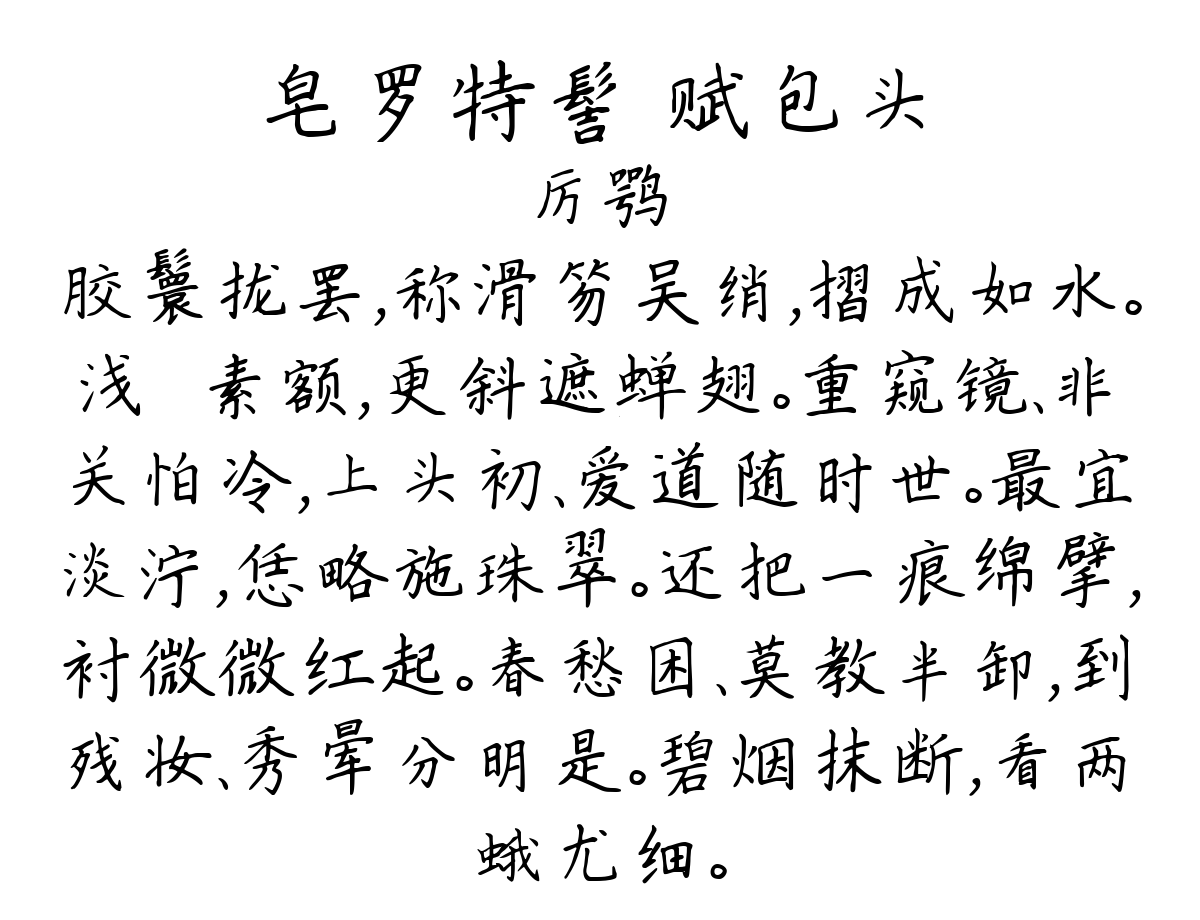 皂罗特髻 赋包头
厉鹗
胶鬟拢罢,称滑笏吴绡,摺成如水。
浅 素额,更斜遮蝉翅。重窥镜、非
关怕冷,上头初、爱道随时世。最宜
淡泞,恁略施珠翠。还把一痕绵擘,
衬微微红起。春愁困、莫教半卸,到
残妆、秀晕分明是。碧烟抹断,看两
蛾尤细。